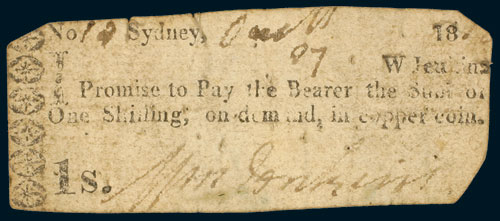 No 12 Sydney, 18
W Jenkins
I Promise to Pay the Bearer the Sum of
One Shilling, on demand, in copper coin.
1s. Wm Jenkins